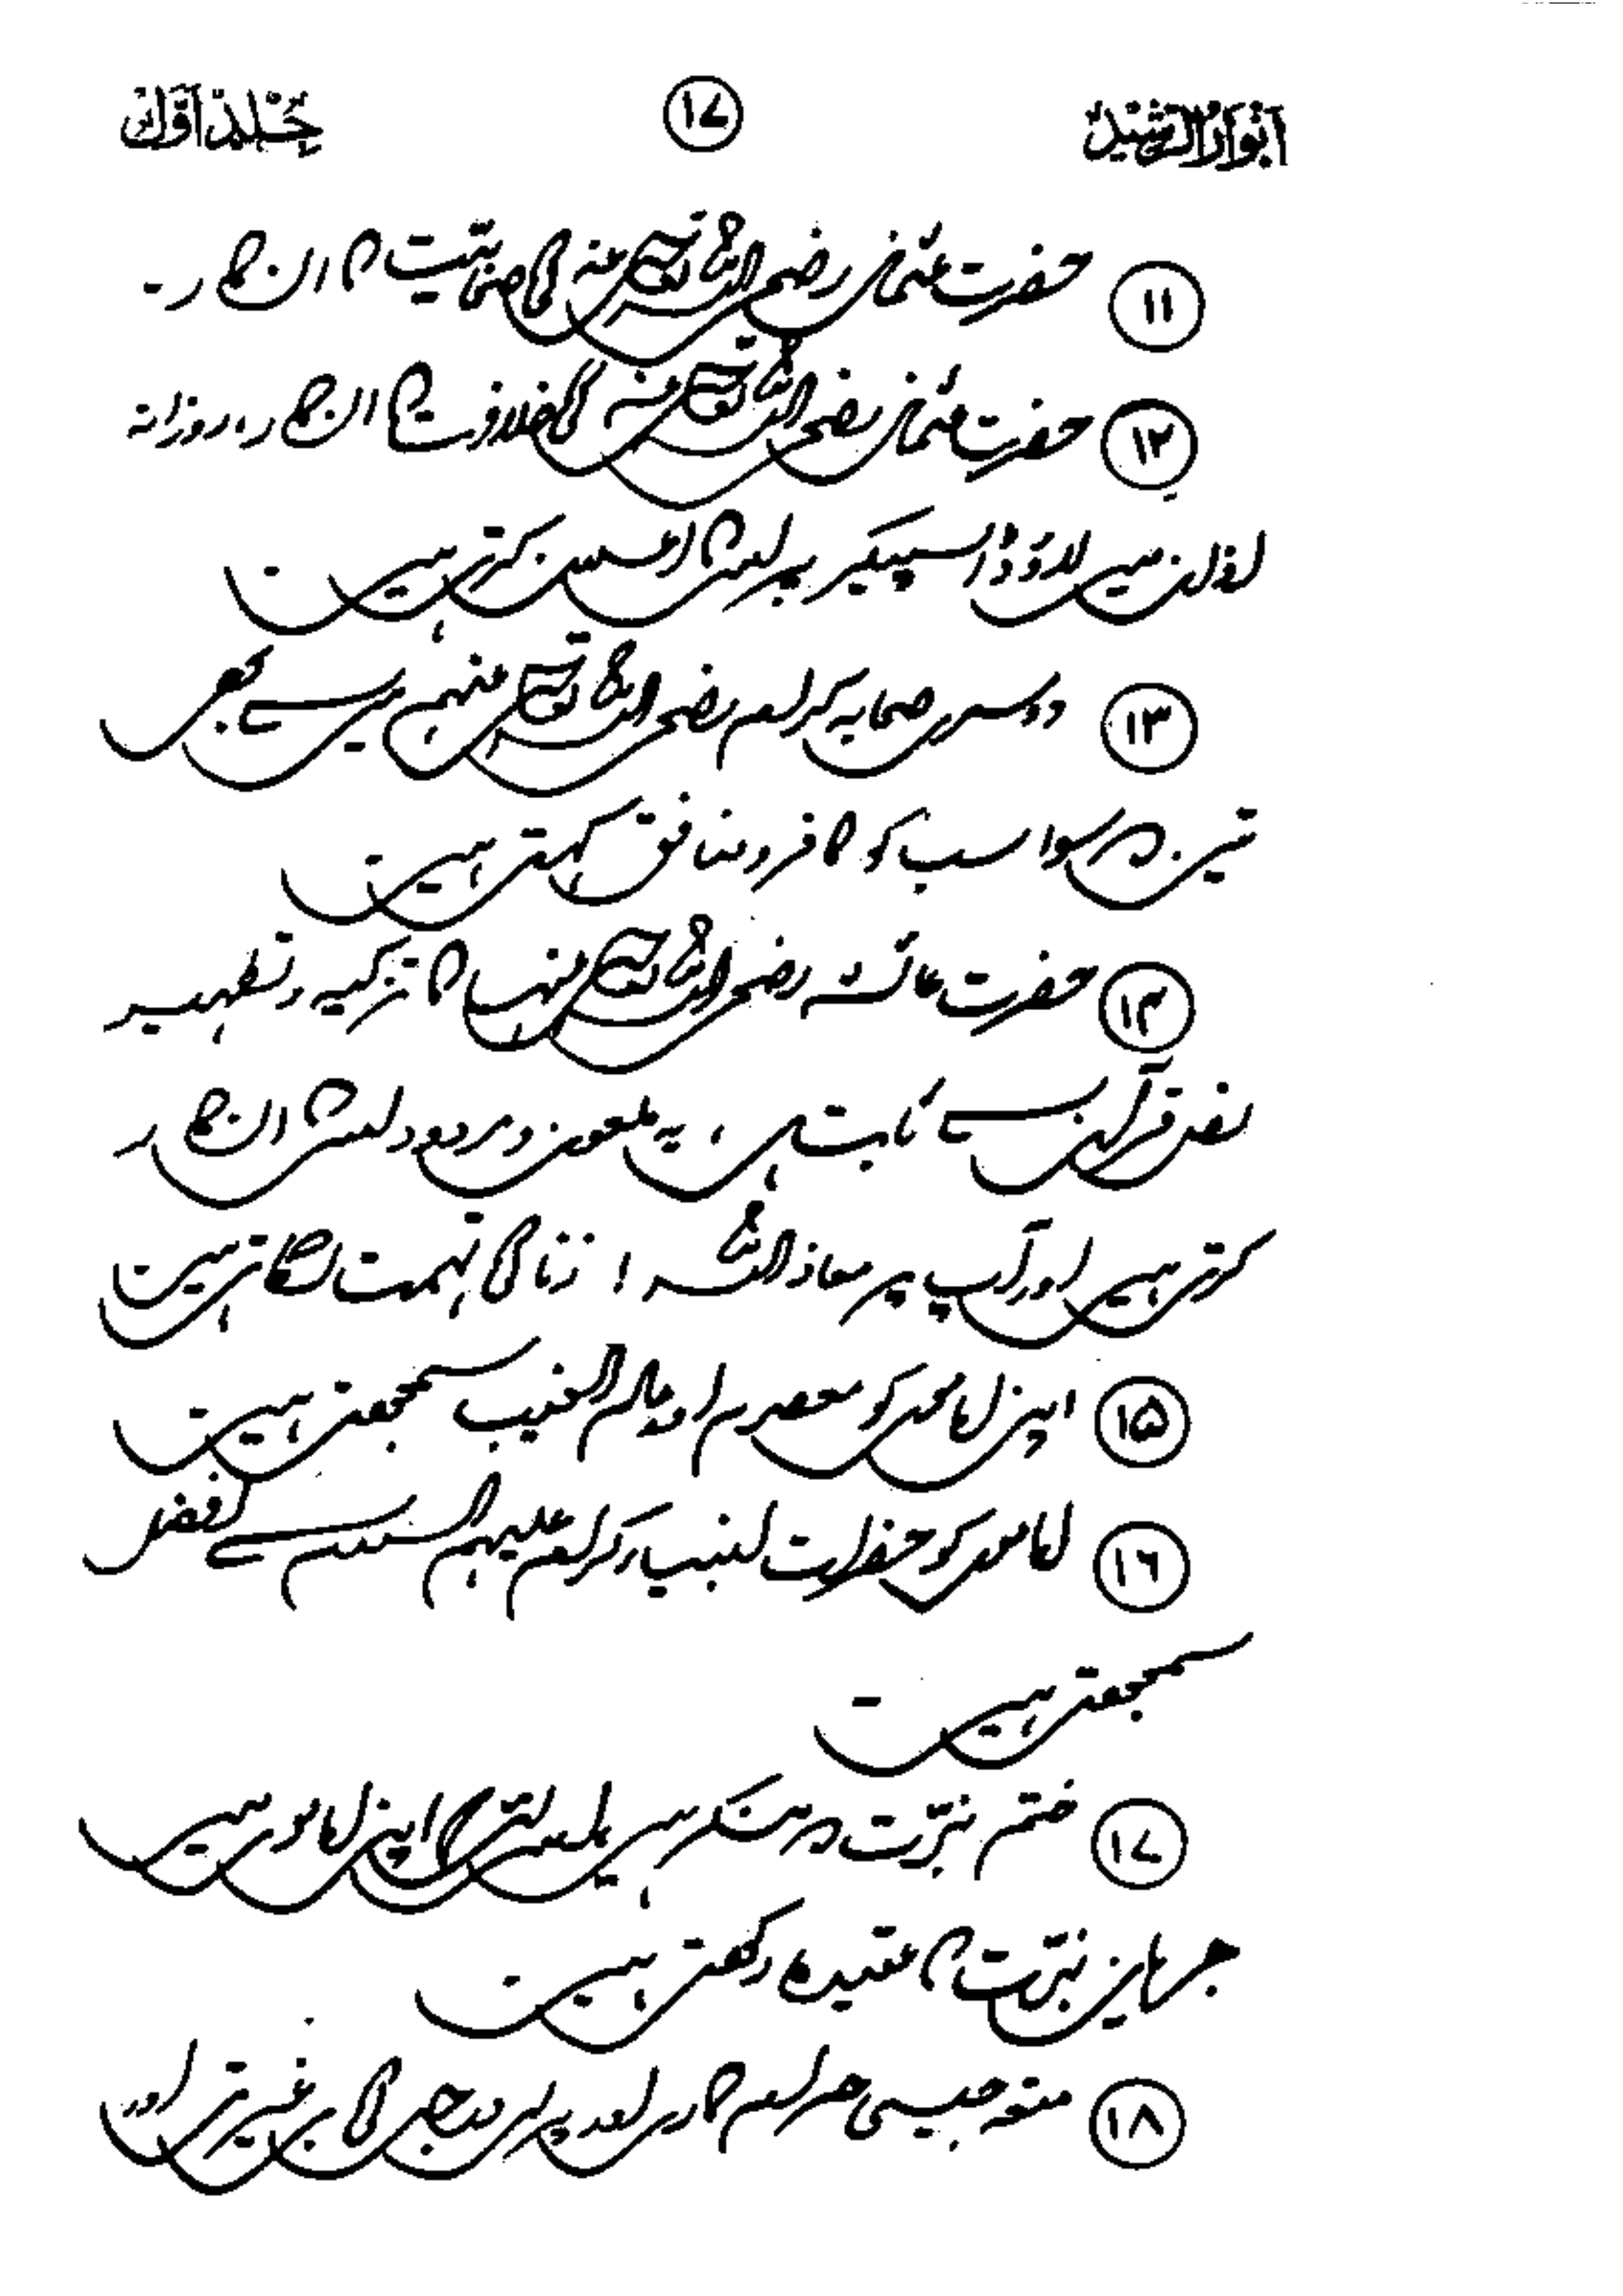 انوار الرشید ۱۷ جلد اول
۱۱ حضرت عثمان رضی اللہ تعالیٰ عنہ کی صحابیت کا انکار۔
۱۲ حضرت عثمان رضی اللہ تعالیٰ عنہ کی خلافت کا انکار، روزانہ
اذان میں لاؤڈ اسپیکر پر اس کا اعلان کرتے ہیں۔
۱۳ دوسرے صحابہ کرام رضی اللہ تعالیٰ عنہم میں سے بھی
تین کے سوا سب کو کافر و منافق کہتے ہیں۔
۱۴ حضرت عائشہ رضی اللہ تعالیٰ عنہا کا تزکیہ و تطہیر
نص قرآن سے ثابت ہے، یہ ملعون و مردود اس کا انکار
کرتے ہیں اور آپ پر معاذ اللہ! زنا کی تہمت لگاتے ہیں۔
۱۵ اپنے اماموں کو معصوم اور عالم الغیب سمجھتے ہیں۔
۱۶ اماموں کو حضرات انبیاء کرام علیہم السلام سے افضل
سمجھتے ہیں۔
۱۷ ختم نبوت کے منکر ہیں، اس لئے کہ اپنے اماموں میں
جریان نبوت کا عقیدہ رکھتے ہیں۔
۱۸ متعہ جیسی حرام کاری اور پرلے درجے کی بے غیرتی اور